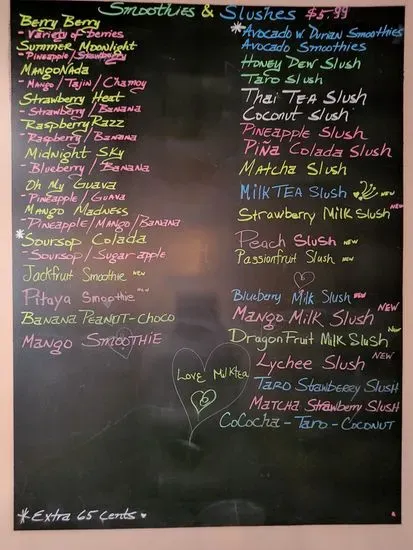 Smoothies & Slushes $5.99
Berry Berry
- Variety of berries
Summer Moonlight
- Pineapple / Strawberry
MangoNada
- Mango / Tajin / Chamoy
Strawberry Heat
- Strawberry / Banana
RaspberryRazz
- Raspberry / Banana
Midnight Sky
- Blueberry / Banana
Oh My Guava
- Pineapple / Guava
Mango Madness
- Pineapple / Mango / Banana
* Soursop Colada
- Soursop / Sugar apple
Jackfruit Smoothie NEW
Pitaya Smoothie NEW
Banana Peanut-Choco
Mango Smoothie
* Avocado w. Durian Smoothies
Avocado Smoothies
Honey Dew Slush
Taro Slush
Thai Tea Slush
Coconut Slush
Pineapple Slush
Piña Colada Slush
Matcha Slush
Milk Tea Slush NEW
Strawberry Milk Slush NEW
Peach Slush NEW
Passionfruit Slush NEW
Blueberry Milk Slush NEW
Mango Milk Slush NEW
DragonFruit Milk Slush NEW
Lychee Slush NEW
Taro Strawberry Slush
Matcha Strawberry Slush
CoCocha - Taro - Coconut
Love Milktea
* Extra 65 Cents